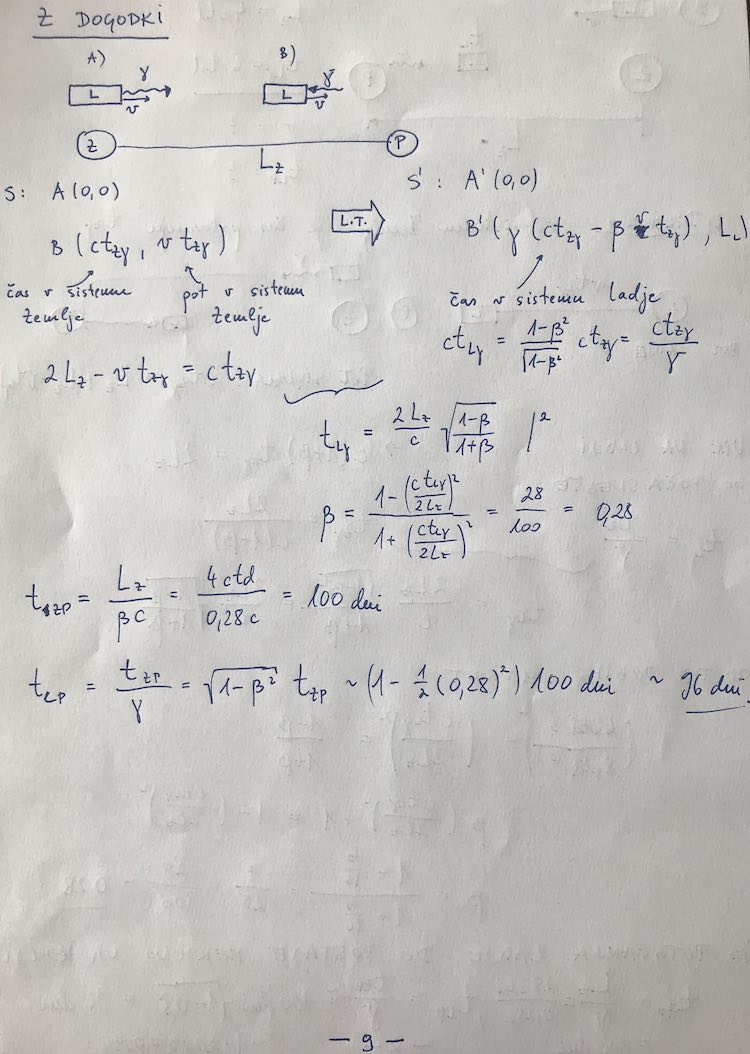 Z DOGODKI
A) B)
γ γ
L v L v
Z P
L_Z
S: A(0,0)
S': A'(0,0)
L.T.
B (ct_Zγ, v t_Zγ)
B' (γ (ct_Zγ - β v t_Zγ), L_L)
čas v sistemu zemlje
pot v sistemu zemlje
čas v sistemu ladje
ct_Lγ = (1-β²)/√(1-β²) ct_Zγ = ct_Zγ/γ
2L_Z - v t_Zγ = ct_Zγ
t_Lγ = 2L_Z/c √((1-β)/(1+β)) |²
β = (1-(ct_Lγ/2L_Z)²)/(1+(ct_Lγ/2L_Z)²) = 28/100 = 0,28
t_ZP = L_Z/βc = 4ctd/0,28c = 100 dni
t_LP = t_ZP/γ = √(1-β²) t_ZP ~ (1 - ½(0,28)²) 100 dni ~ 96 dni.
- 9 -